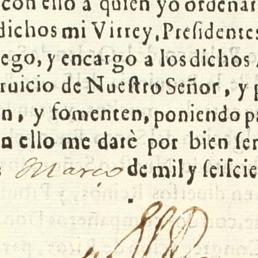 con ello a quien yo ordenar
dichos mi Virrey, Presidentes
ego, y encargo a los dichos
ruicio de Nuestro Señor, y p
n, y fomenten, poniendo pa
n ello me darè por bien ser
Março de mil y seiscie